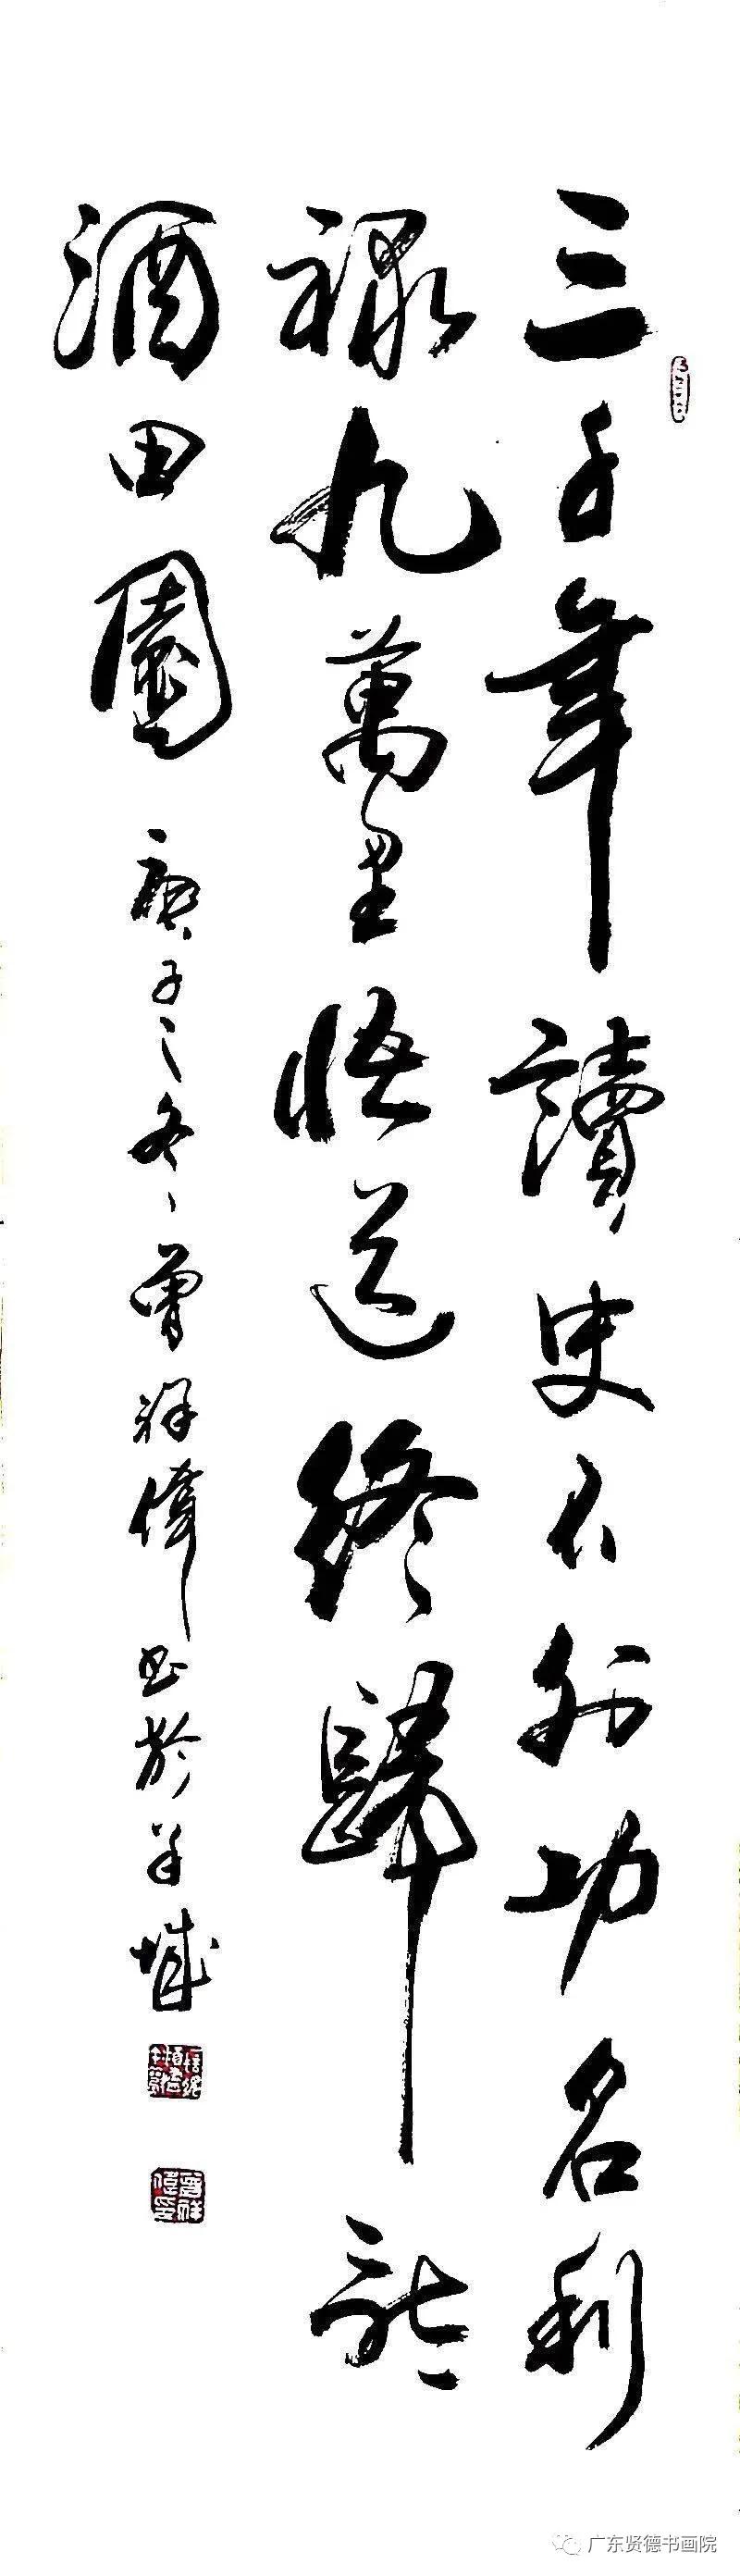 三千年讀史不外功名利
祿九萬里悟道終歸詩
酒田園
庚子之冬曾祥偉書於羊城
广东贤德书画院